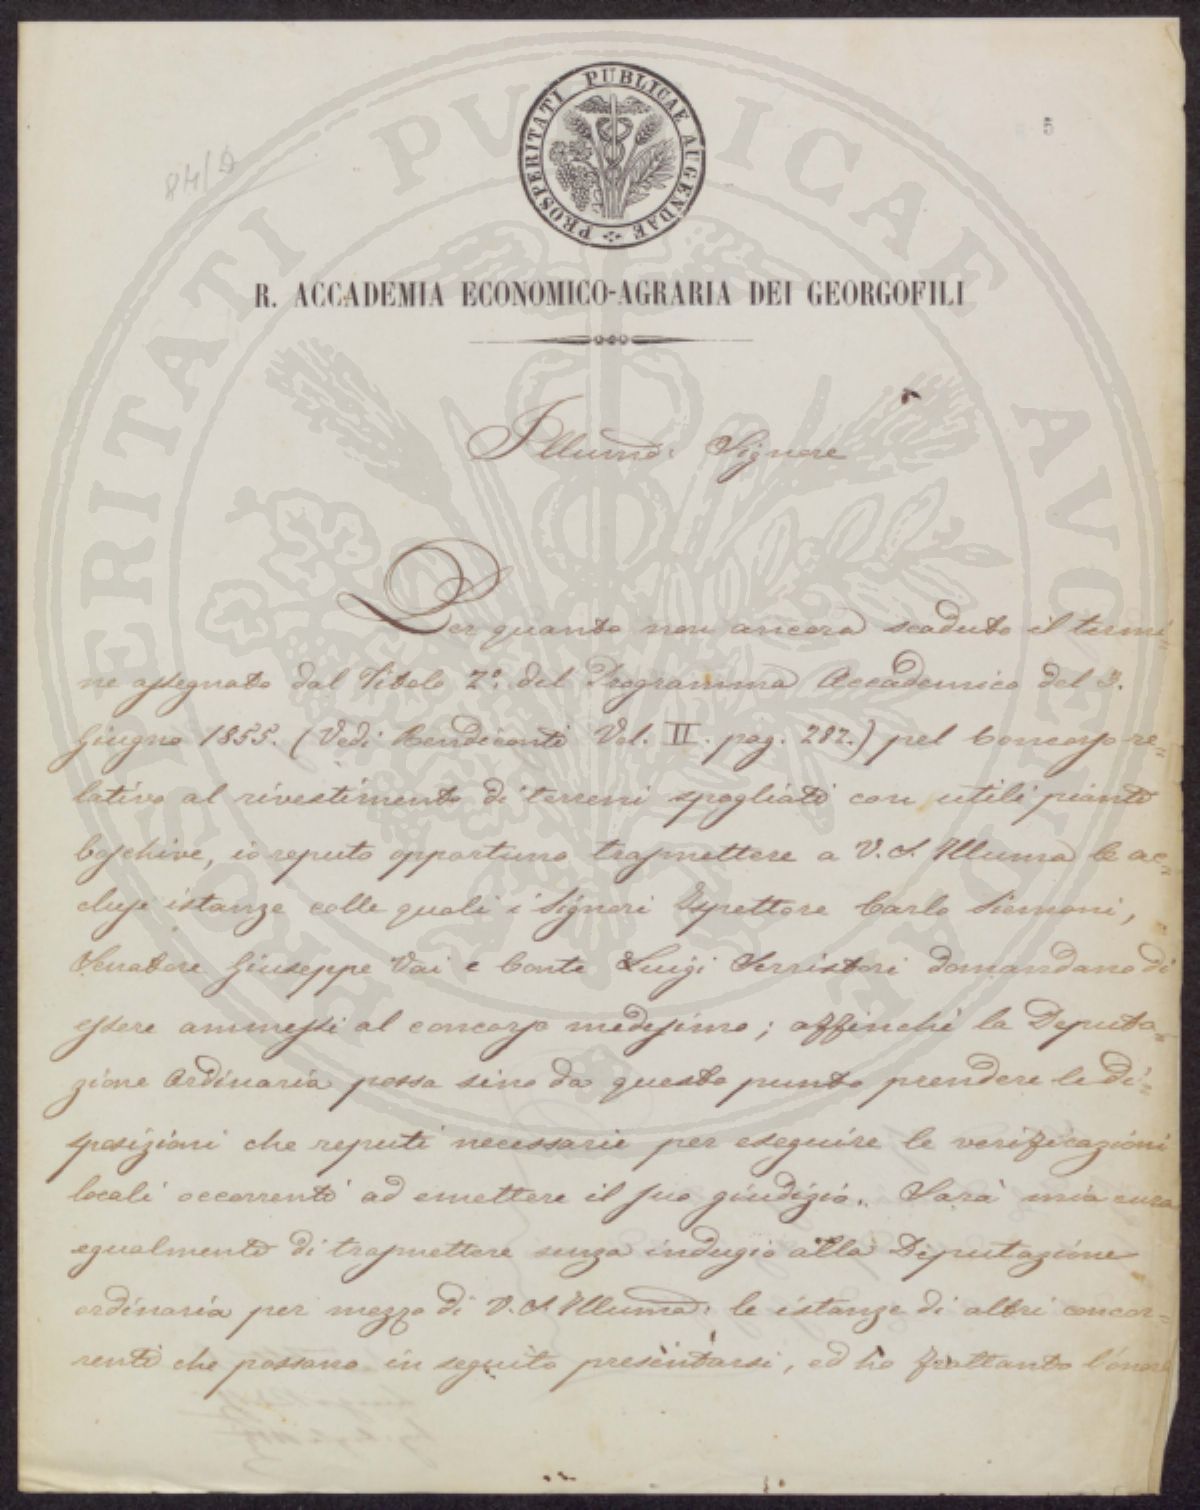 PROSPERITATI PUBLICAE AUGENDAE
5
84/9
R. ACCADEMIA ECONOMICO-AGRARIA DEI GEORGOFILI
Illumo: Signore
Per quanto non ancora scaduto il termi=
ne assegnato dal Titolo 2º. del Programma Accademico del 3.
Giugno 1855. (Vedi Rendiconti Vol. II. pag. 282.) pel Concorso re=
lativo al rivestimento di terreni spogliati con utili piante
boschive, io reputo opportuno trasmettere a V. S. Illuma le ac=
cluse istanze colle quali i Signori Ispettore Carlo Siemoni,
Senatore Giuseppe Vai e Conte Luigi Serristori domandano di
essere ammessi al concorso medesimo; affinchè la Deputa=
zione Ordinaria possa sino da questo punto prendere le di=
sposizioni che reputi necessarie per eseguire le verificazioni
locali occorrenti ad emettere il suo giudizio. Sarà mia cura
egualmente di trasmettere senza indugio alla Deputazione
ordinaria per mezzo di V. S. Illuma: le istanze di altri concor=
renti che possano in seguito presentarsi, ed ho frattanto l'onore